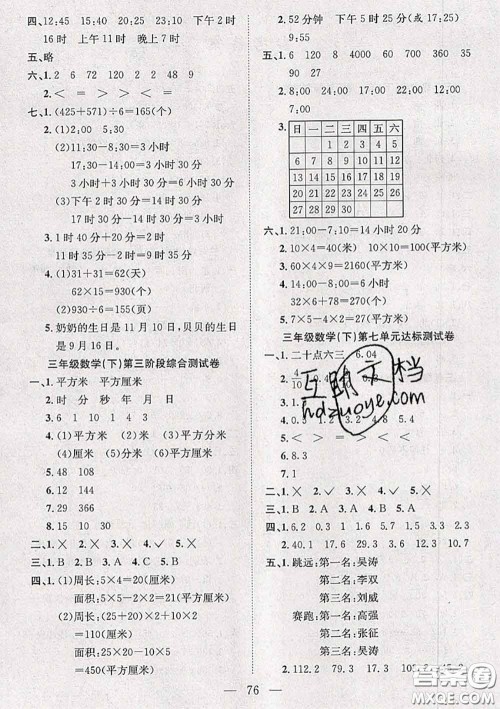 四、12:45 15:40 20:25 23:35 下午2时
16时 上午11时 晚上7时
五、略
六、1. 2 6 72 120 2 2 48 9
2. < > = < = =
七、1. (425+571)÷6=165(个)
2. (1)2:00 5:30
(2)11:30-8:30=3小时
17:30-14:00=3小时30分
3小时+3小时30分=6小时30分
(3)下午2时+3小时30分=
17时30分
3. 1时40分+20分=2时
11时30分-2时=9时30分
4. (1)31+31=62(天)
62×15=930(个)
(2)930÷6=155(元)
5. 奶奶的生日是11月10日,贝贝的生
日是9月16日。
三年级数学(下)第三阶段综合测试卷
一、1. 平方米 平方厘米
2. 时 分 秒 年 月 日
3. 1000 10 200 5
4. (1)平方米 (2)米 (3)平方分米
(4)厘米 (5)厘米 (6)平方厘米
5. 48 108
6. 300
7. 24 144 288
8. 15 10 30
二、1. × 2. × 3. × 4. √ 5. ×
三、1. B 2. A 3. A 4. C 5. B
四、1. (1)周长:5×4=20(厘米)
面积:5×5-2×2=21(平方厘米)
(2)周长:(25+20)×2+10×2
=110(厘米)
面积:25×20-10×5
=450(平方厘米)
2. 52分钟 下午5时25分(或17:25)
9:00
五、1. 6 120 48 15 2 62 366 35
90
2. 8:00 23:00 19:00 16:00 12:00
7:00
3.
日 一 二 三 四 五 六
1 2 3 4 5
6 7 8 9 10 11 12
13 14 15 16 17 18 19
20 21 22 23 24 25 26
27 28 29 30
六、1. 21:00-7:10=14小时20分
2. 10×4=40(米) 10×10=100(平方米)
3. 80×3×9=2160(平方米)
4. 18:00-11:00=7(小时)
32×6×7=1344(平方米)
5. 7×5-4×2=27(平方米)
三年级数学(下)第七单元达标测试卷
一、1. 二十点六三 6.04
6. > < > < > =
7. >
8. 1
二、1. × 2. √ 3. × 4. √ 5. √
三、1. B 2. B 3. A 4. A 5. A
四、1. 1.2 0.9 1.6 6.3 6.2 3.6
2. 40.1 9.4 17.1 26.8 12.8 10.6
五、1. 跳远:第一名:吴涛
第二名:李双
第三名:刘威
赛跑:第一名:高强
第二名:张征
第三名:吴涛
2. 112.2 79.3 17.3
76
互助文档
hdzuoye.com
答案圈
MXQE.COM